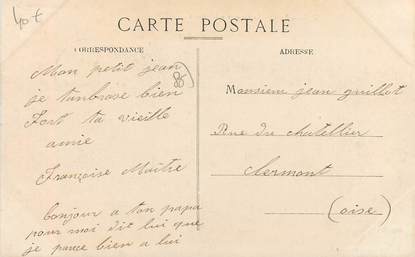 40 €
CARTE POSTALE
CORRESPONDANCE
ADRESSE
Mon petit jean
je tanbrase bien
Fort ta vieille
amie
Françoise Maitre
bonjour a ton papa
pour moi dit lui que
je pance bien a lui
Monsieur jean guillot
Rue du chatellier
clermont
(oise)